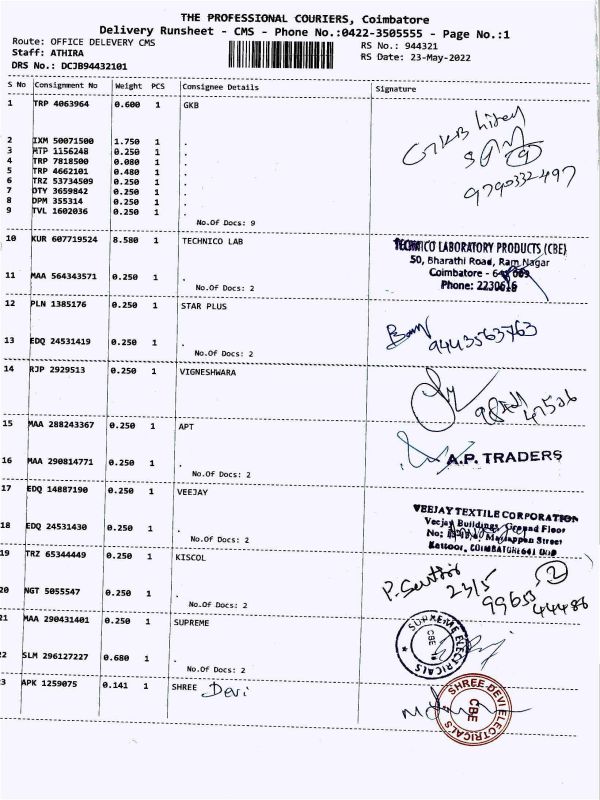 THE PROFESSIONAL COURIERS, Coimbatore
Delivery Runsheet - CMS - Phone No.:0422-3505555 - Page No.:1
Route: OFFICE DELEVERY CMS
RS No.: 944321
Staff: ATHIRA
RS Date: 23-May-2022
DRS No.: DCJB94432101
S No Consignment No Weight PCS Consignee Details Signature
1 TRP 4063964 0.600 1 GKB
2 IXM 50071500 1.750 1 .
3 MTP 1156248 0.250 1 .
4 TRP 7818500 0.080 1 .
5 TRP 4662101 0.480 1 .
6 TRZ 53734509 0.250 1 .
7 OTY 3659842 0.250 1 .
8 DPM 355314 0.250 1 .
9 TVL 1602036 0.250 1 .
No.Of Docs: 9
9790332497
10 KUR 607719524 8.580 1 TECHNICO LAB
TECHNICO LABORATORY PRODUCTS (CBE)
50, Bharathi Road, Ram Nagar
Coimbatore - 641 009
Phone: 2230616
11 MAA 564343571 0.250 1 .
No.Of Docs: 2
12 PLN 1385176 0.250 1 STAR PLUS
9443563763
13 EDQ 24531419 0.250 1 .
No.Of Docs: 2
14 RJP 2929513 0.250 1 VIGNESHWARA
15 MAA 288243367 0.250 1 APT
A.P. TRADERS
16 MAA 290814771 0.250 1 .
No.Of Docs: 2
17 EDQ 14887190 0.250 1 VEEJAY
VEEJAY TEXTILE CORPORATION
Veejay Buildings, Ground Floor
Maylappan Street
Kattoor, COIMBATORE-641 009
18 EDQ 24531430 0.250 1 .
No.Of Docs: 2
19 TRZ 65344449 0.250 1 KISCOL
23/5
2
99653
44486
20 NGT 5055547 0.250 1 .
No.Of Docs: 2
21 MAA 290431401 0.250 1 SUPREME
SUPREME ELECTRICALS
CBE
22 SLM 296127227 0.680 1 .
No.Of Docs: 2
23 APK 1259075 0.141 1 SHREE Devi
SHREE DEVI ELECTRICALS
CBE